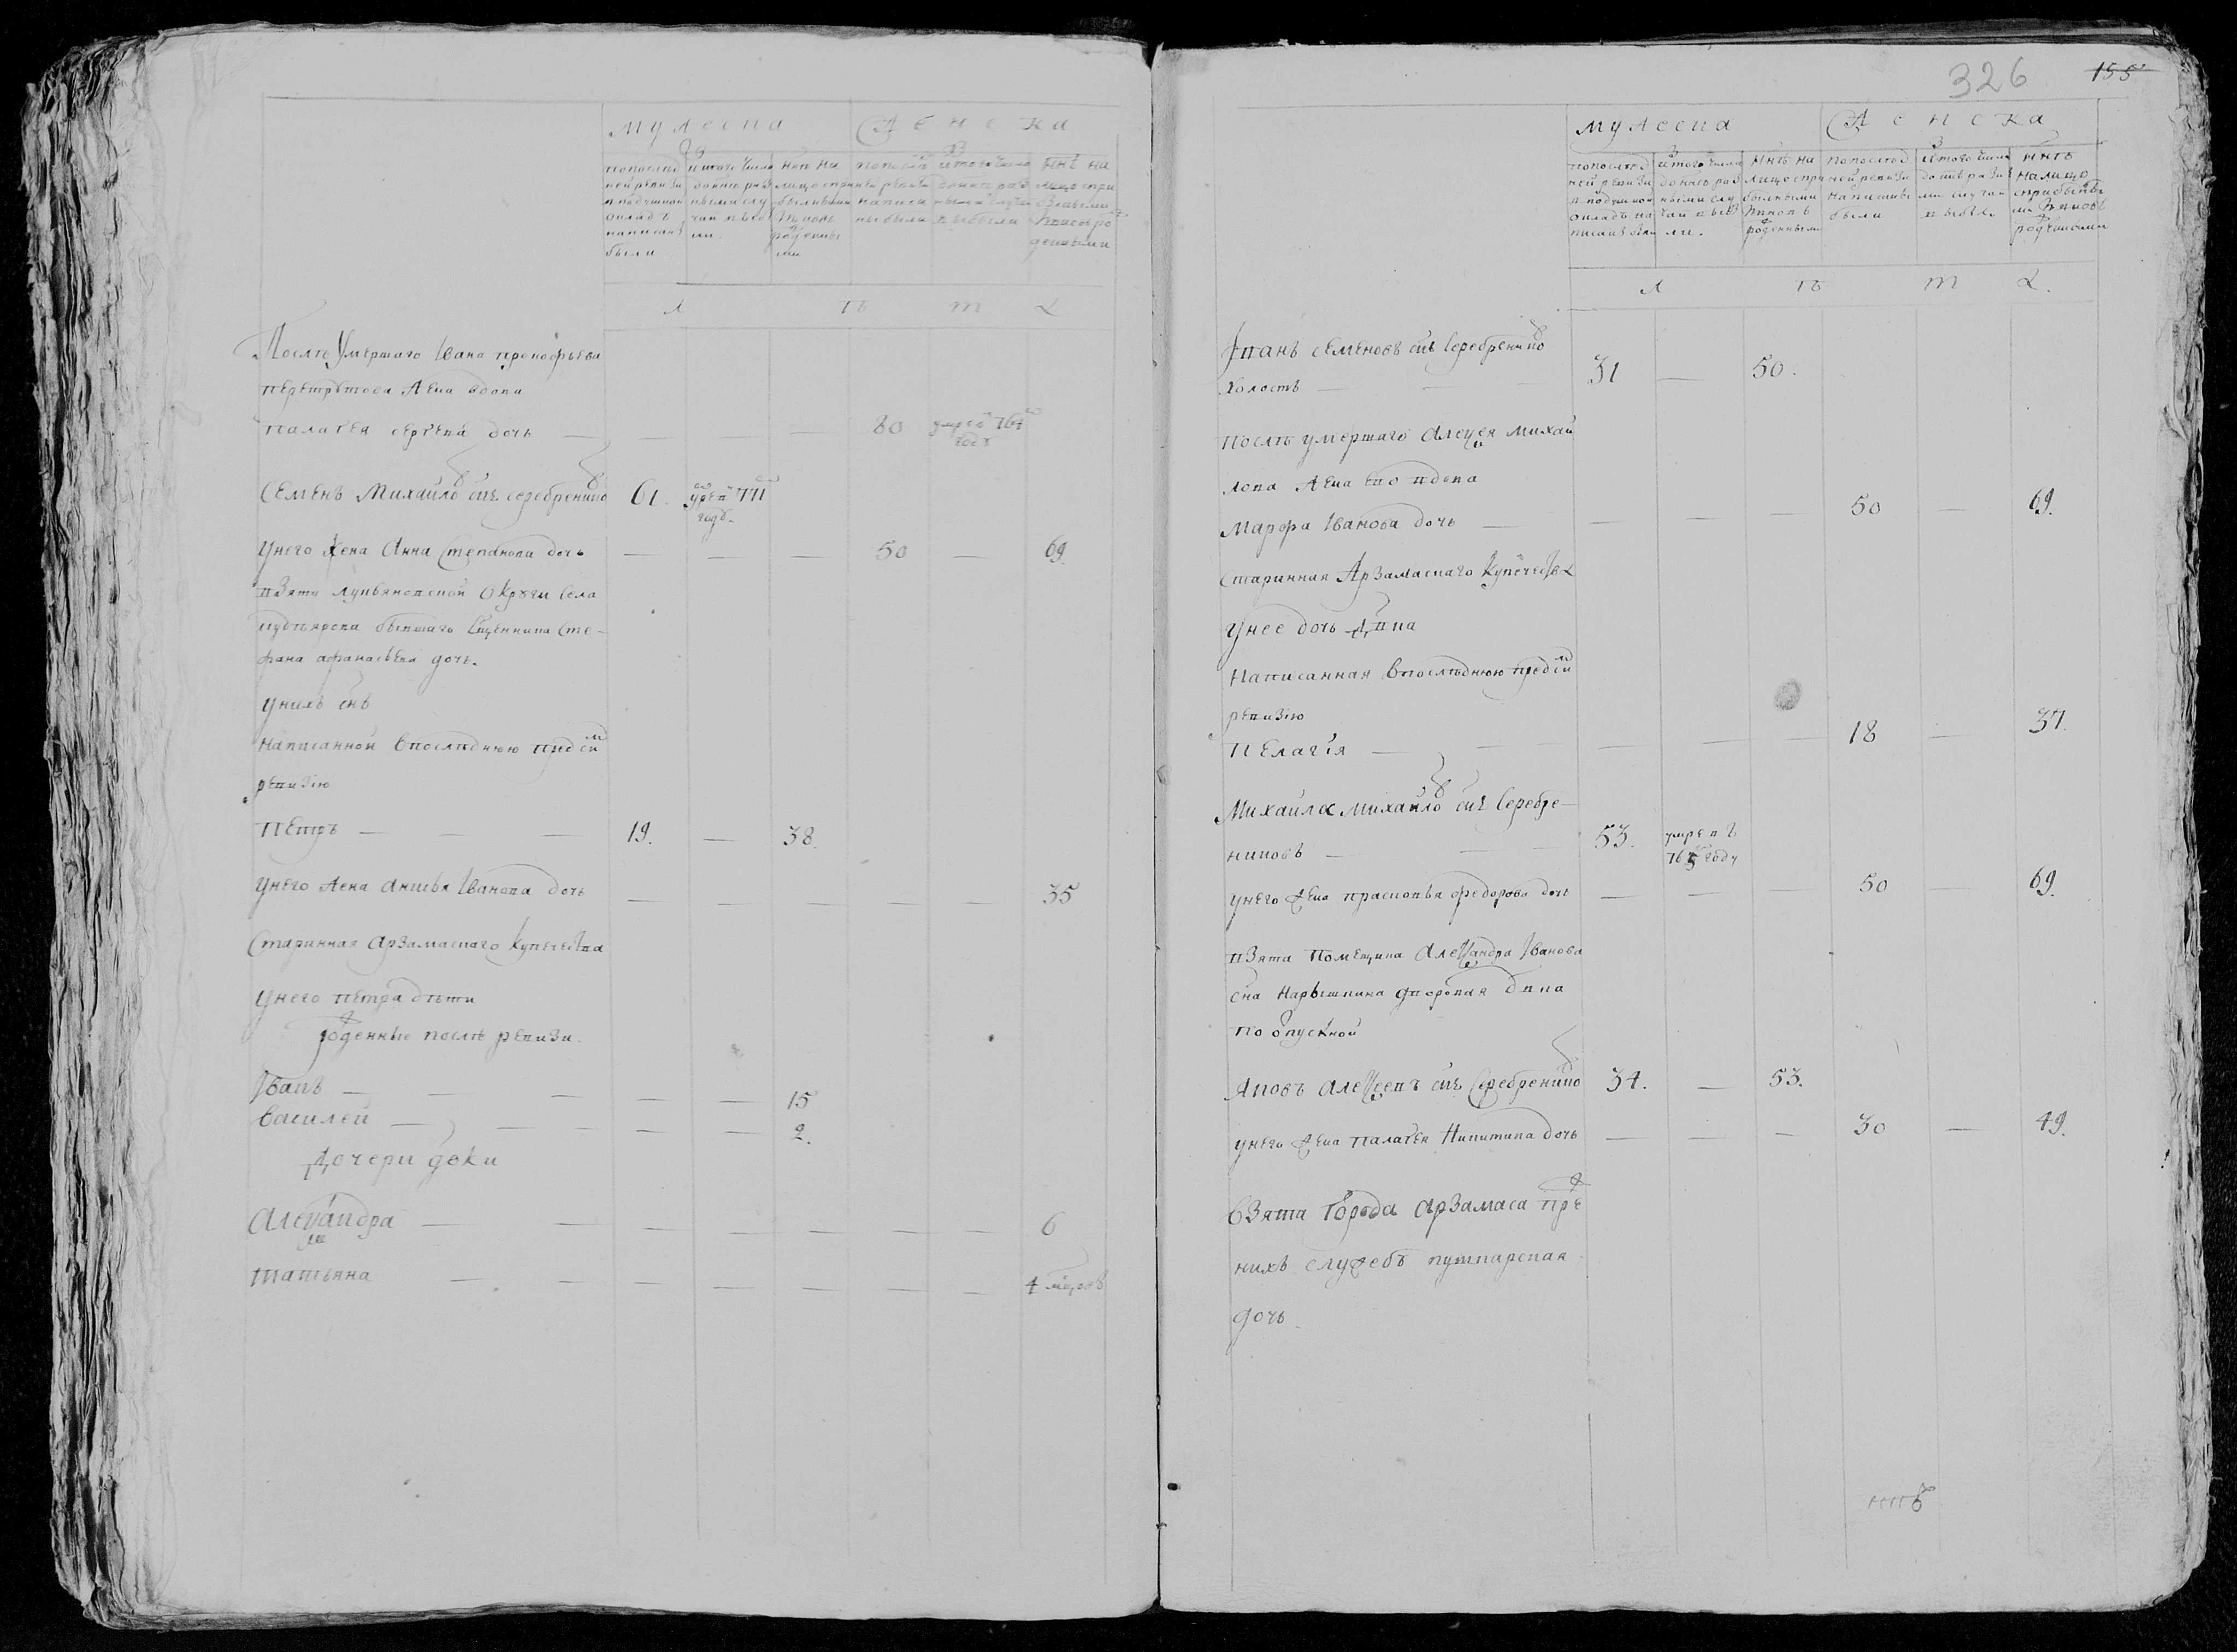 мужеска
женска
попослед
ней ревизи
в подушной
окладъ
написаны
были
изтого числа
до нынѣ раз
ными слу
чаи выбы
ли
нынѣ на
лицо спри
былыми
и вновь
рожденны
ми
лѣта
Послѣ Умершаго Ивана прокофьева
перетрутова жена вдова
палагея сергѣева дочь — — — — 80 умре в 764 годѣ
Семенъ Михайловъ снъ серебрениковъ 61. умре в 771 году
унего жена Анна Степанова дочь — — — 50 — 69.
взята лукьяновской Округи села
бывшаго священника Сте-
фана афанасьева дочь.
унихъ снъ
написанной впоследнюю пред сим
ревизию
Петръ — — — 19. — 38.
унего жена Анисья Иванова дочь — — — — — 35
Старинная арзамаскаго купечества
унего петра дѣти
рожденные послѣ ревизи.
Иванъ — — — — — 15
василей — — — — — 2.
Дочери девки
Алеѯандра — — — — — — — 6
татьяна — — — — — — — 4 месецовъ
326 155
мужеска
женска
попослед
ней ревизи
в подушной
окладъ на
писаны были
изтого числа
до нынѣ раз
ными слу
чаи выбы
ли.
нынѣ на
лицо спри
былыми
и вновь
рожденными
попослед
ней ревизи
написаны
были
изтого числа
до нынѣ разны
ми случаи
выбыли
нынѣ
налицо
сприбылы
ми и вновь
рождеными
лѣта.
Иванъ семеновъ снъ Серебрениковъ
холостъ — — — 31 — 50.
послѣ умершаго Алеѯея михай
лова жена ево вдова
Марфа Иванова дочь — — — — 50 — 69.
Старинная Арзамаскаго купечества
унее дочь дѣвка
написанная впослѣднюю предсим
ревизию
Пелагія — — — — — — 18 — 37.
Михайла михайловъ снъ Серебре-
никовъ — — — 53. умре въ 765 году
унего жена прасковья федорова дочь — — — 50 — 69.
взята помещика Алеѯандра Иванова
сна Нарышкина дворовая дѣвка
по опускной
Яковъ Алеѯеевъ снъ Серебрениковъ 34. — 53.
унего жена палагея Никитина дочь — — — 30 — 49.
Взята города арзамаса преж
нихъ служебъ пушкарская
дочь